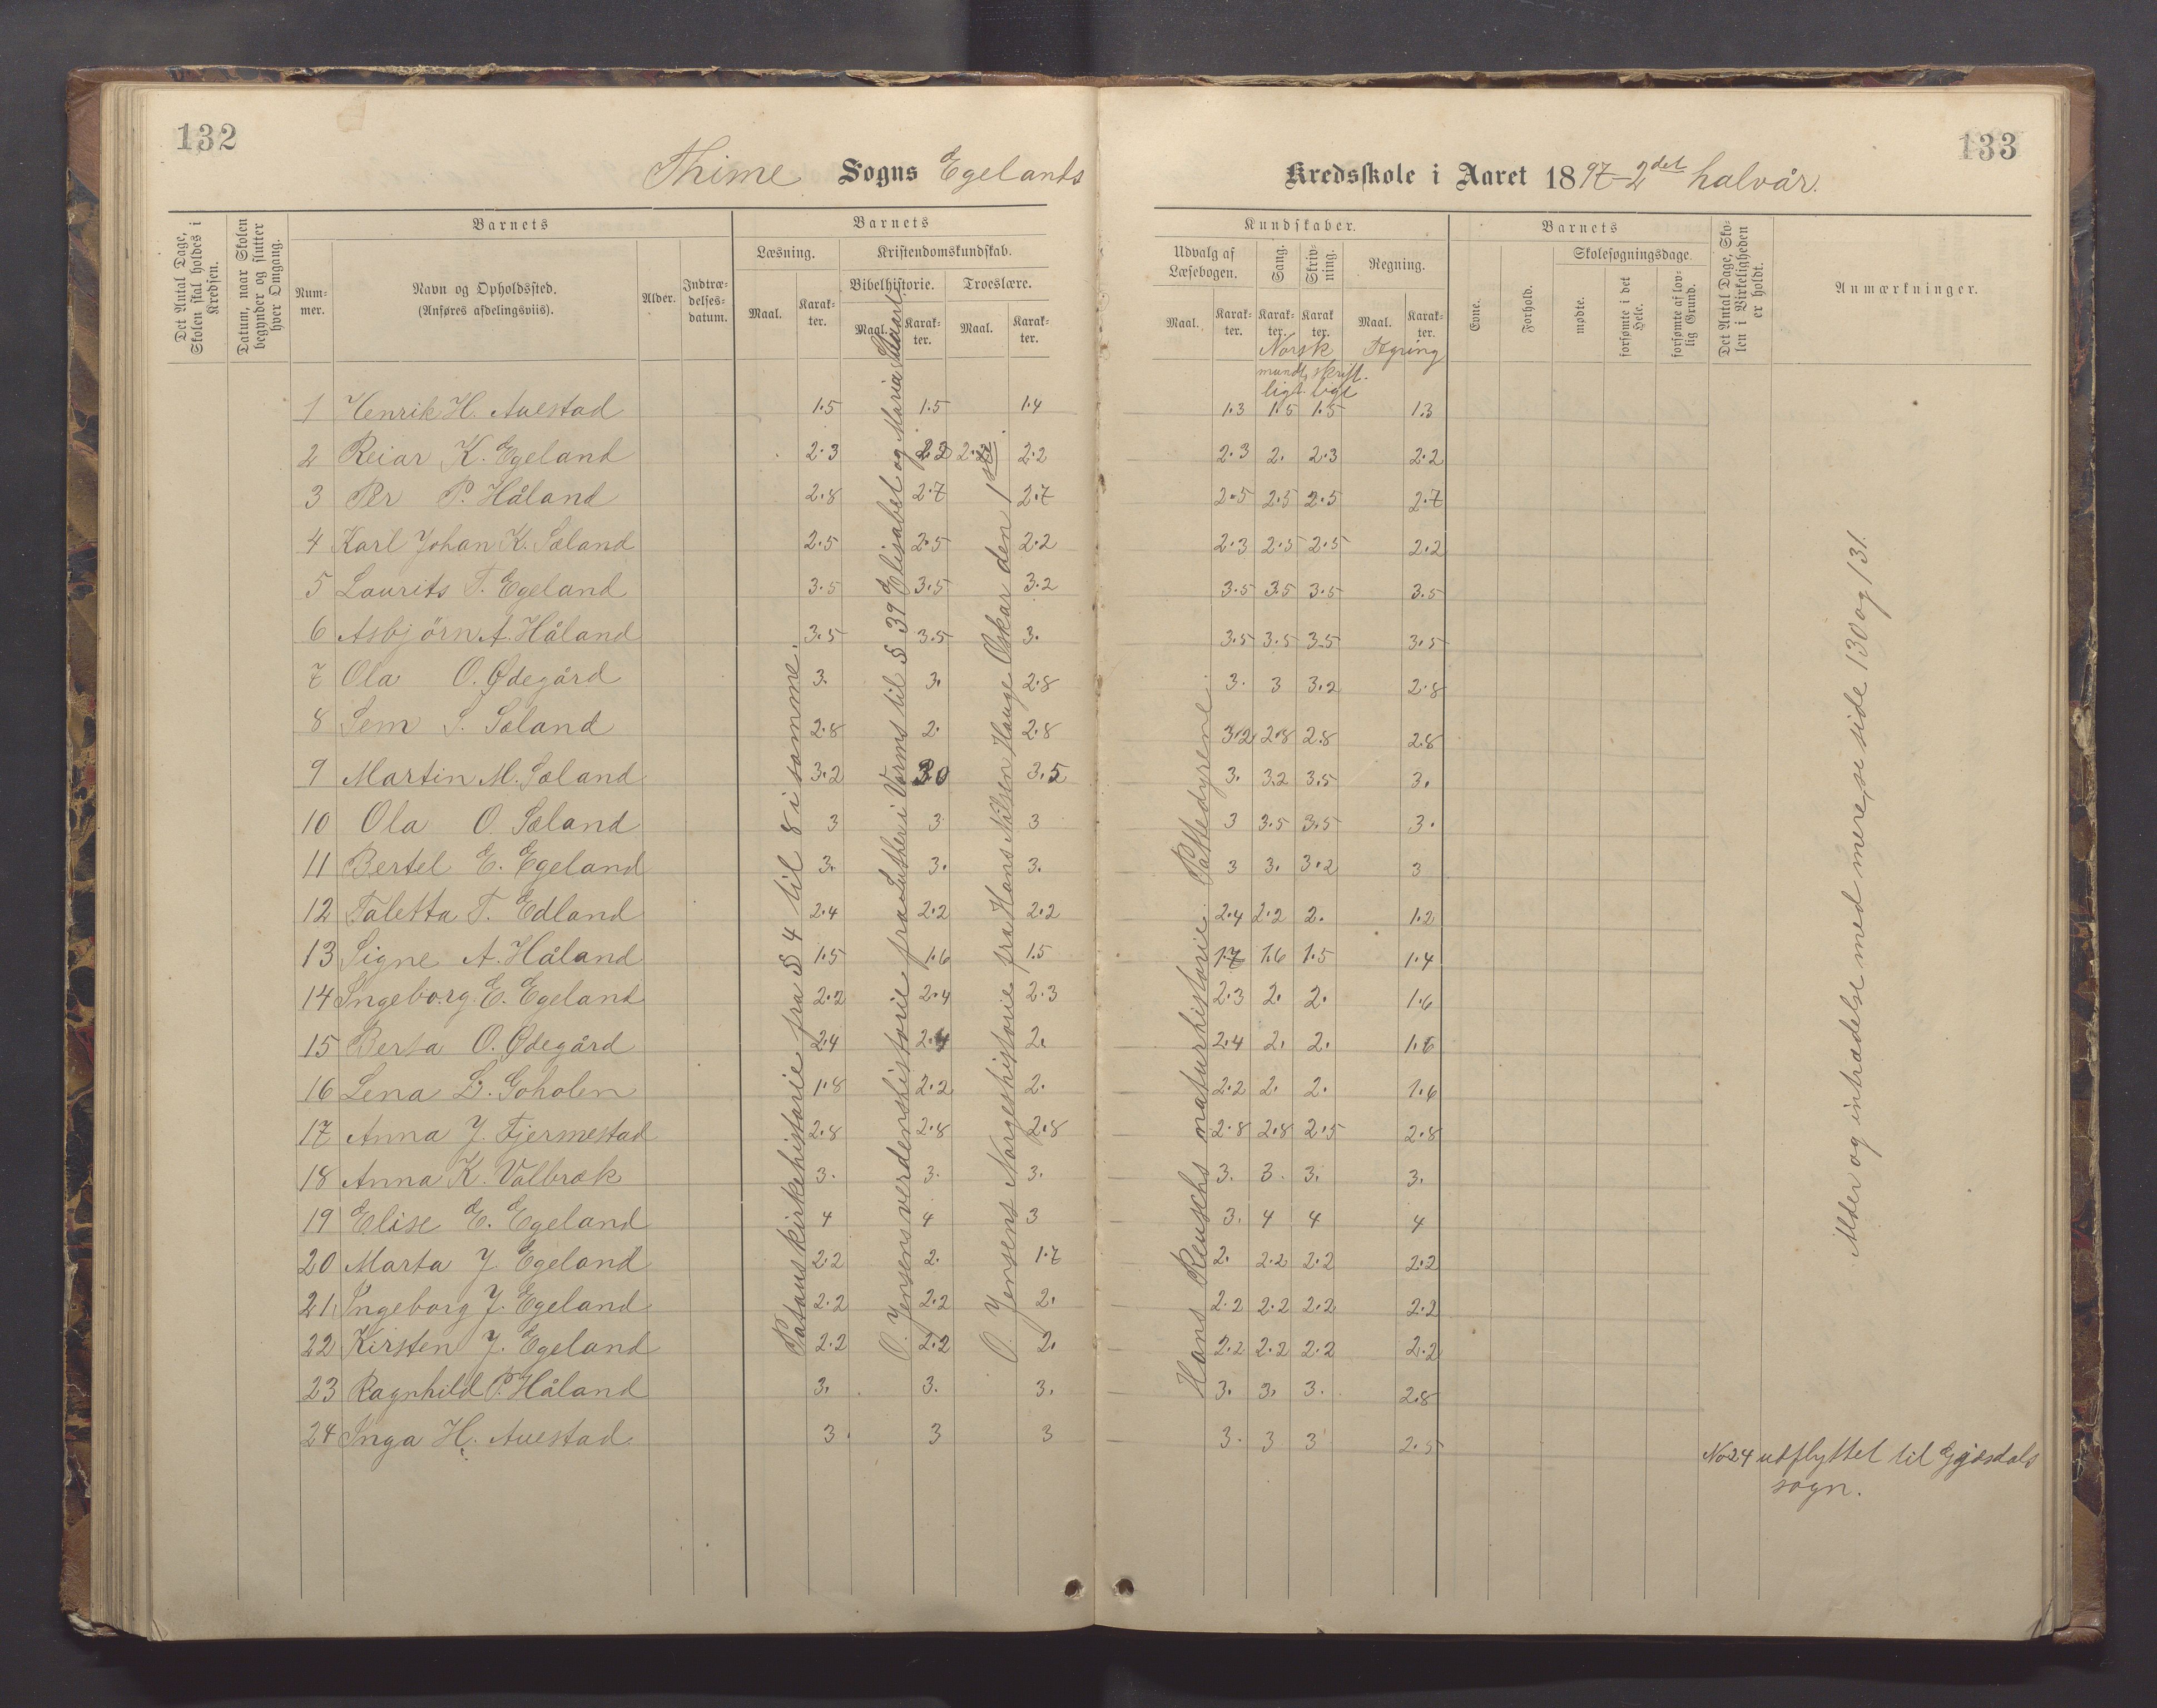 132
133
Thime Sogns Egelands Kredsskole i Aaret 1897-2det halvår.
Det Antal Dage, Skolen skal holdes i Kredsen.
Datum, naar Skolen begynder og slutter hver Omgang.
Barnets
Nummer.
Navn og Opholdssted.
(Anføres afdelingsviis).
Alder.
Indtrædelsesdatum.
Barnets
Læsning.
Kristendomskundskab.
Bibelhistorie.
Troeslære.
Maal. Karakter. Maal. Karakter. Maal. Karakter.
Kundskaber.
Udvalg af Læsebogen.
Sang.
Skrivning.
Regning.
Maal. Karakter. Karakter. Karakter. Maal. Karakter.
Norsk
mundtligt skriftligt
Barnets
Evne.
Forhold.
Skolesøgningsdage.
mødte.
forsømte i det Hele.
forsømte af lovlig Grund.
Det Antal Dage, Skolen i Virkeligheden er holdt.
Anmærkninger.
1 Henrik H. Auestad 1.5 1.5 1.4 1.3 1.5 1.5 1.3
2 Reiar K. Egeland 2.3 2.3 2.2 2.3 2. 2.3 2.2
3 Per P. Håland 2.8 2.7 2.7 2.5 2.5 2.5 2.7
4 Karl Johan K. Sæland 2.5 2.5 2.2 2.3 2.5 2.5 2.2
5 Laurits T. Egeland 3.5 3.5 3.2 3.5 3.5 3.5 3.5
6 Asbjörn A. Håland 3.5 3.5 3. 3.5 3.5 3.5 3.5
7 Ola O. Ødegård 3. 3. 2.8 3. 3 3.2 2.8
8 Sem S. Sæland 2.8 2. 2.8 3.2 2.8 2.8 2.8
9 Martin M. Sæland 3.2 3.0 3.5 3. 3.2 3.5 3.
10 Ola O. Sæland 3 3 3 3 3.5 3.5 3.
11 Bertel E. Egeland 3. 3. 3. 3 3. 3.2 3
12 Taletta T. Edland 2.4 2.2 2.2 2.4 2.2 2. 1.2
13 Signe A. Håland 1.5 1.6 1.5 1.7 1.6 1.5 1.4
14 Ingeborg E. Egeland 2.2 2.4 2.3 2.3 2. 2. 1.6
15 Berta O. Ødegård 2.4 2.4 2. 2.4 2. 2. 1.6
16 Lena L. Goholen 1.8 2.2 2. 2.2 2. 2. 1.6
17 Anna J. Fjermestad 2.8 2.8 2.8 2.8 2.8 2.5 2.8
18 Anna K. Valbræk 3. 3. 3. 3. 3. 3. 3.
19 Elise E. Egeland 4 4 3 3. 4 4 4
20 Marta J. Egeland 2.2 2. 1.7 2. 2.2 2.2 2.2
21 Ingeborg J. Egeland 2.2 2.2 2. 2.2 2.2 2.2 2.2
22 Kirsten J. Egeland 2.2 2.2 2. 2.2 2.2 2.2 2.2
23 Ragnhild P. Håland 3. 3. 3. 3. 3. 3. 2.8
24 Inga H. Auestad 3. 3 3 3. 3 3 2.5
kirkehistorie fra § 4 til 8 i somme.
O. Jensens verdenshistorie fra Luther i Worms til § 39 Elisabet og Maria Stuart
O. Jensens Norgeshistorie fra Hans Nilsen Hauge Oskar den 1ste.
Hans Reuschs naturhistorie Pattedyrene
Alder og intrædelse med mere, se side 130 og 131.
No 24 udflyttet til Gjesdals
sogn.